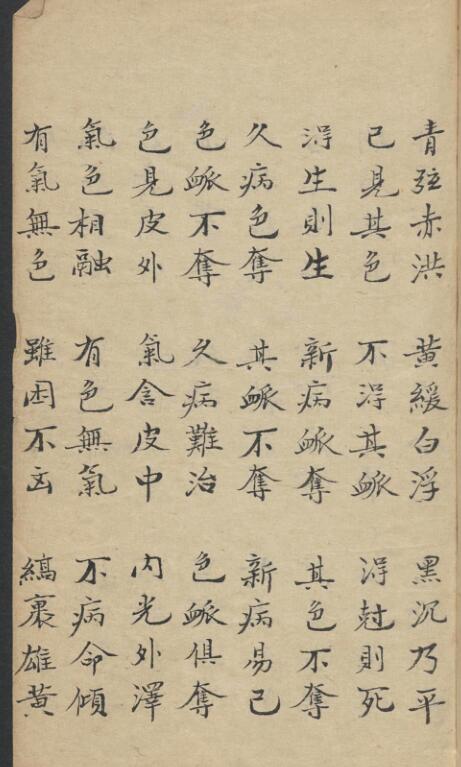 青弦赤洪 黃緩白浮 黑沉乃平
已見其色 不淂其衇 淂尅則死
淂生則生 新病衇奪 其色不奪
久病色奪 其衇不奪 新病易已
色衇不奪 久病難治 色衇俱奪
色見皮外 氣含皮中 內光外澤
氣色相融 有色無氣 不病命傾
有氣無色 雖困不凶 縞裹雄黃